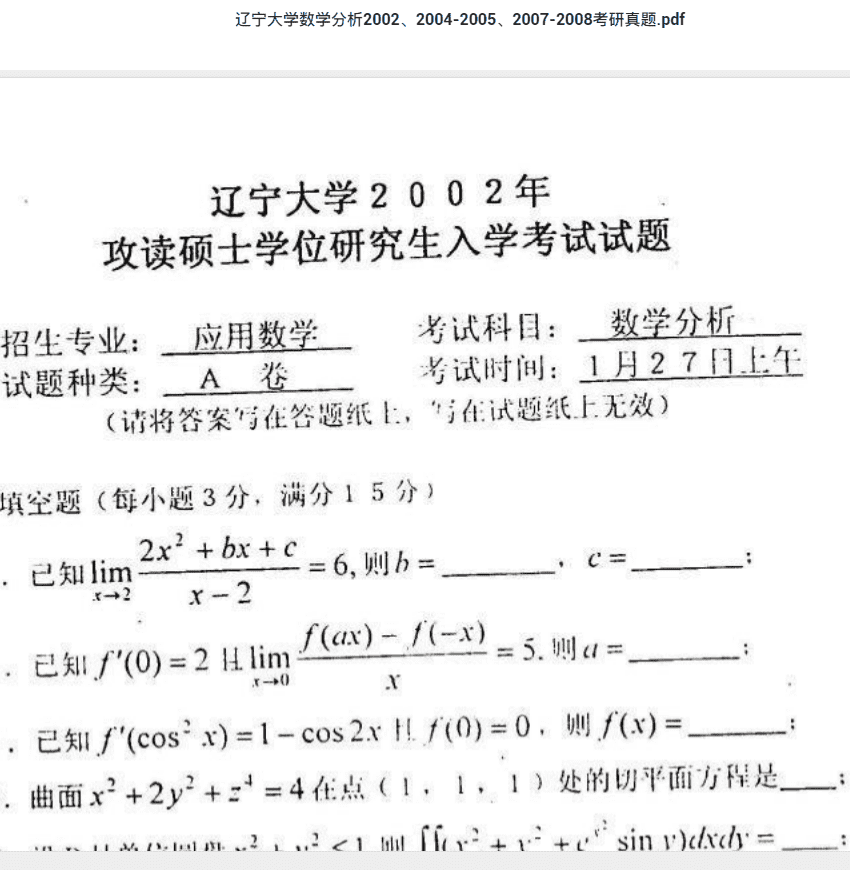 辽宁大学数学分析2002、2004-2005、2007-2008考研真题.pdf
辽宁大学2002年
攻读硕士学位研究生入学考试试题
招生专业： 应用数学 考试科目： 数学分析
试题种类： A 卷 考试时间： 1月27日上午
（请将答案写在答题纸上，写在试题纸上无效）
填空题（每小题3分，满分15分）
. 已知 lim_{x→2} (2x² + bx + c)/(x − 2) = 6, 则 b = ______, c = ______;
. 已知 f′(0) = 2 且 lim_{x→0} (f(ax) − f(−x))/x = 5. 则 a = ______;
. 已知 f′(cos² x) = 1 − cos 2x 且 f(0) = 0, 则 f(x) = ______;
. 曲面 x² + 2y² + z⁴ = 4 在点（1, 1, 1）处的切平面方程是____;
x² + y² ≤ 1 则 ∬(x² + y² + e^{x²} sin y)dxdy = ____;